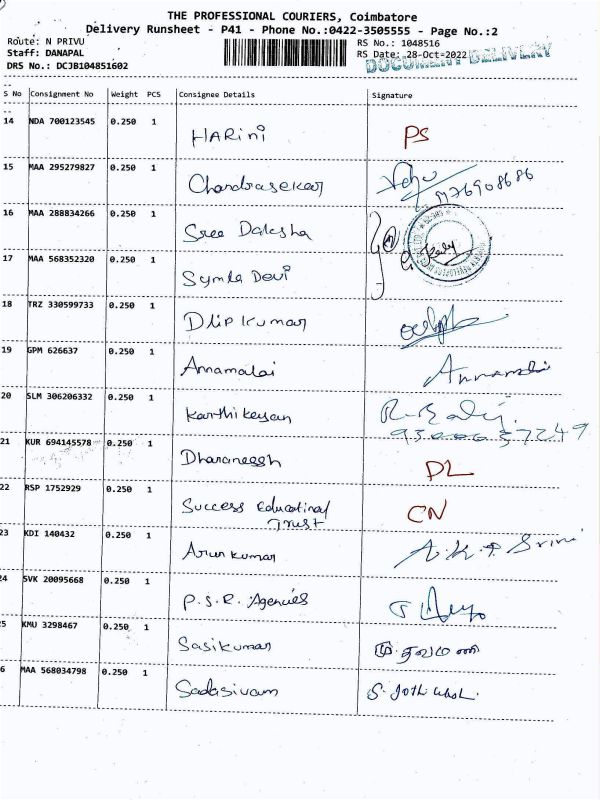 THE PROFESSIONAL COURIERS, Coimbatore
Delivery Runsheet - P41 - Phone No.:0422-3505555 - Page No.:2
Route: N PRIVU RS No.: 1048516
Staff: DANAPAL RS Date: 28-Oct-2022
DRS No.: DCJB104851602 DOCUMENT DELIVERY
S No Consignment No Weight PCS Consignee Details Signature
14 NDA 700123545 0.250 1 HARini PS
15 MAA 295279827 0.250 1 Chandrasekar
16 MAA 288834266 0.250 1 Sree Daksha
17 MAA 568352320 0.250 1 Symla Devi
18 TRZ 330599733 0.250 1 Dlip Kumar
19 GPM 626637 0.250 1 Annamalai
20 SLM 306206332 0.250 1 Karthikeyan
21 KUR 694145578 0.250 1 Dharaneesh DL
22 RSP 1752929 0.250 1 Success Educational CN
Trust
23 KDI 140432 0.250 1 Arun Kumar
24 SVK 20095668 0.250 1 P.S.R. Agencies
25 KMU 3298467 0.250 1 Sasikumar
26 MAA 568034798 0.250 1 Sadasivam